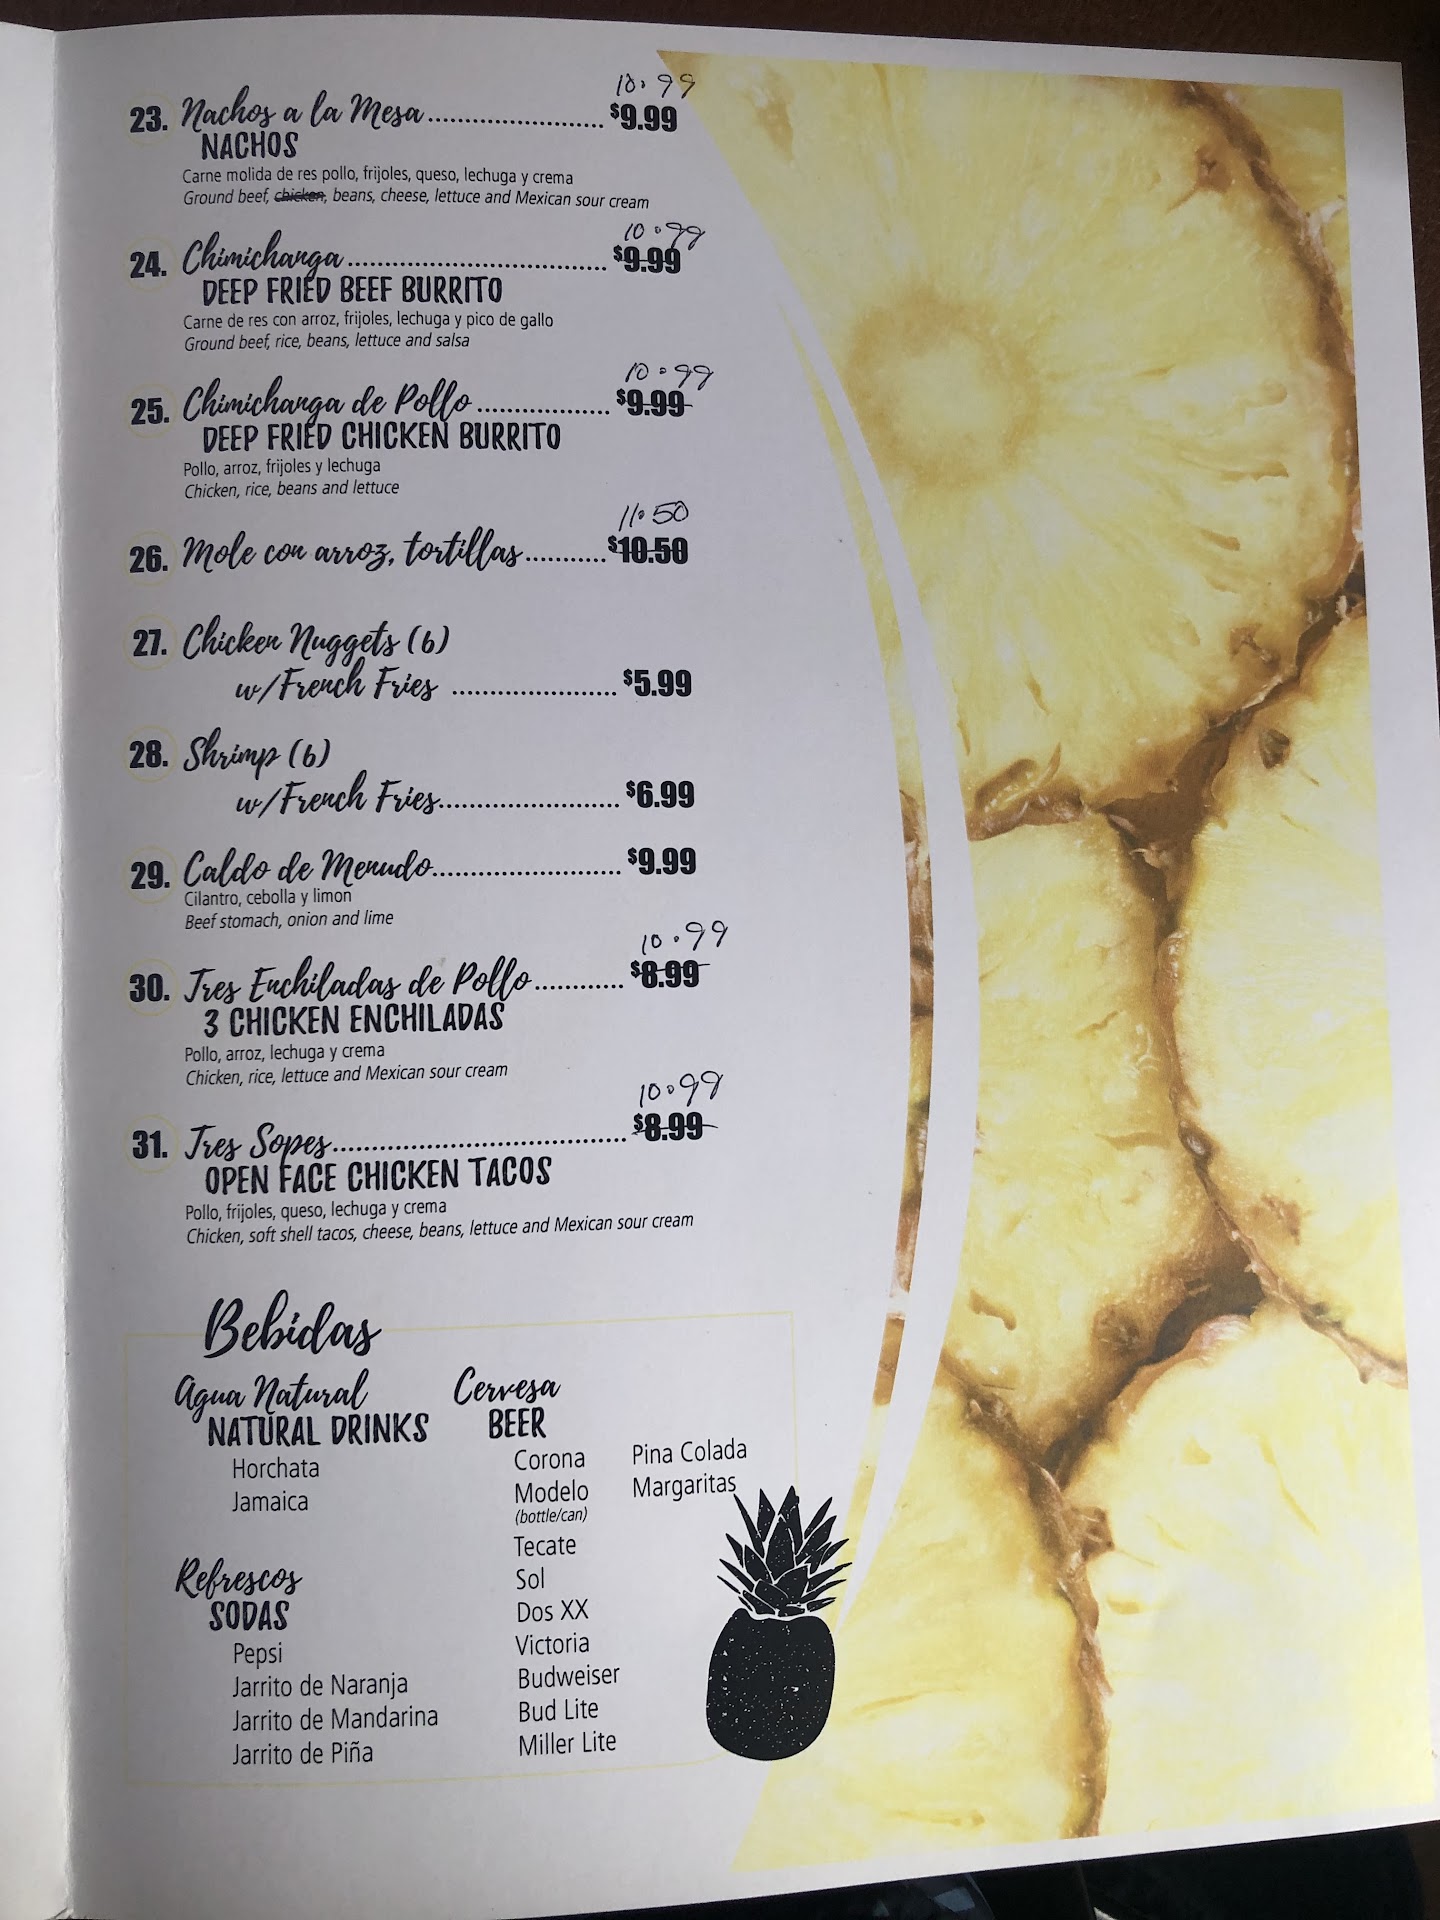 10.99
23. Nachos a la Mesa........................ $9.99
NACHOS
Carne molida de res pollo, frijoles, queso, lechuga y crema
Ground beef, chicken, beans, cheese, lettuce and Mexican sour cream
10.99
24. Chimichanga................................... $9.99
DEEP FRIED BEEF BURRITO
Carne de res con arroz, frijoles, lechuga y pico de gallo
Ground beef, rice, beans, lettuce and salsa
10.99
25. Chimichanga de Pollo .................. $9.99
DEEP FRIED CHICKEN BURRITO
Pollo, arroz, frijoles y lechuga
Chicken, rice, beans and lettuce
11.50
26. Mole con arroz, tortillas........... $10.50
27. Chicken Nuggets (6)
w/French Fries ...................... $5.99
28. Shrimp (6)
w/French Fries........................ $6.99
29. Caldo de Menudo......................... $9.99
Cilantro, cebolla y limon
Beef stomach, onion and lime
10.99
30. Tres Enchiladas de Pollo............ $8.99
3 CHICKEN ENCHILADAS
Pollo, arroz, lechuga y crema
Chicken, rice, lettuce and Mexican sour cream
10.99
31. Tres Sopes....................................... $8.99
OPEN FACE CHICKEN TACOS
Pollo, frijoles, queso, lechuga y crema
Chicken, soft shell tacos, cheese, beans, lettuce and Mexican sour cream
Bebidas
Agua Natural
NATURAL DRINKS
Horchata
Jamaica
Refrescos
SODAS
Pepsi
Jarrito de Naranja
Jarrito de Mandarina
Jarrito de Piña
Cervesa
BEER
Corona
Modelo
(bottle/can)
Tecate
Sol
Dos XX
Victoria
Budweiser
Bud Lite
Miller Lite
Pina Colada
Margaritas